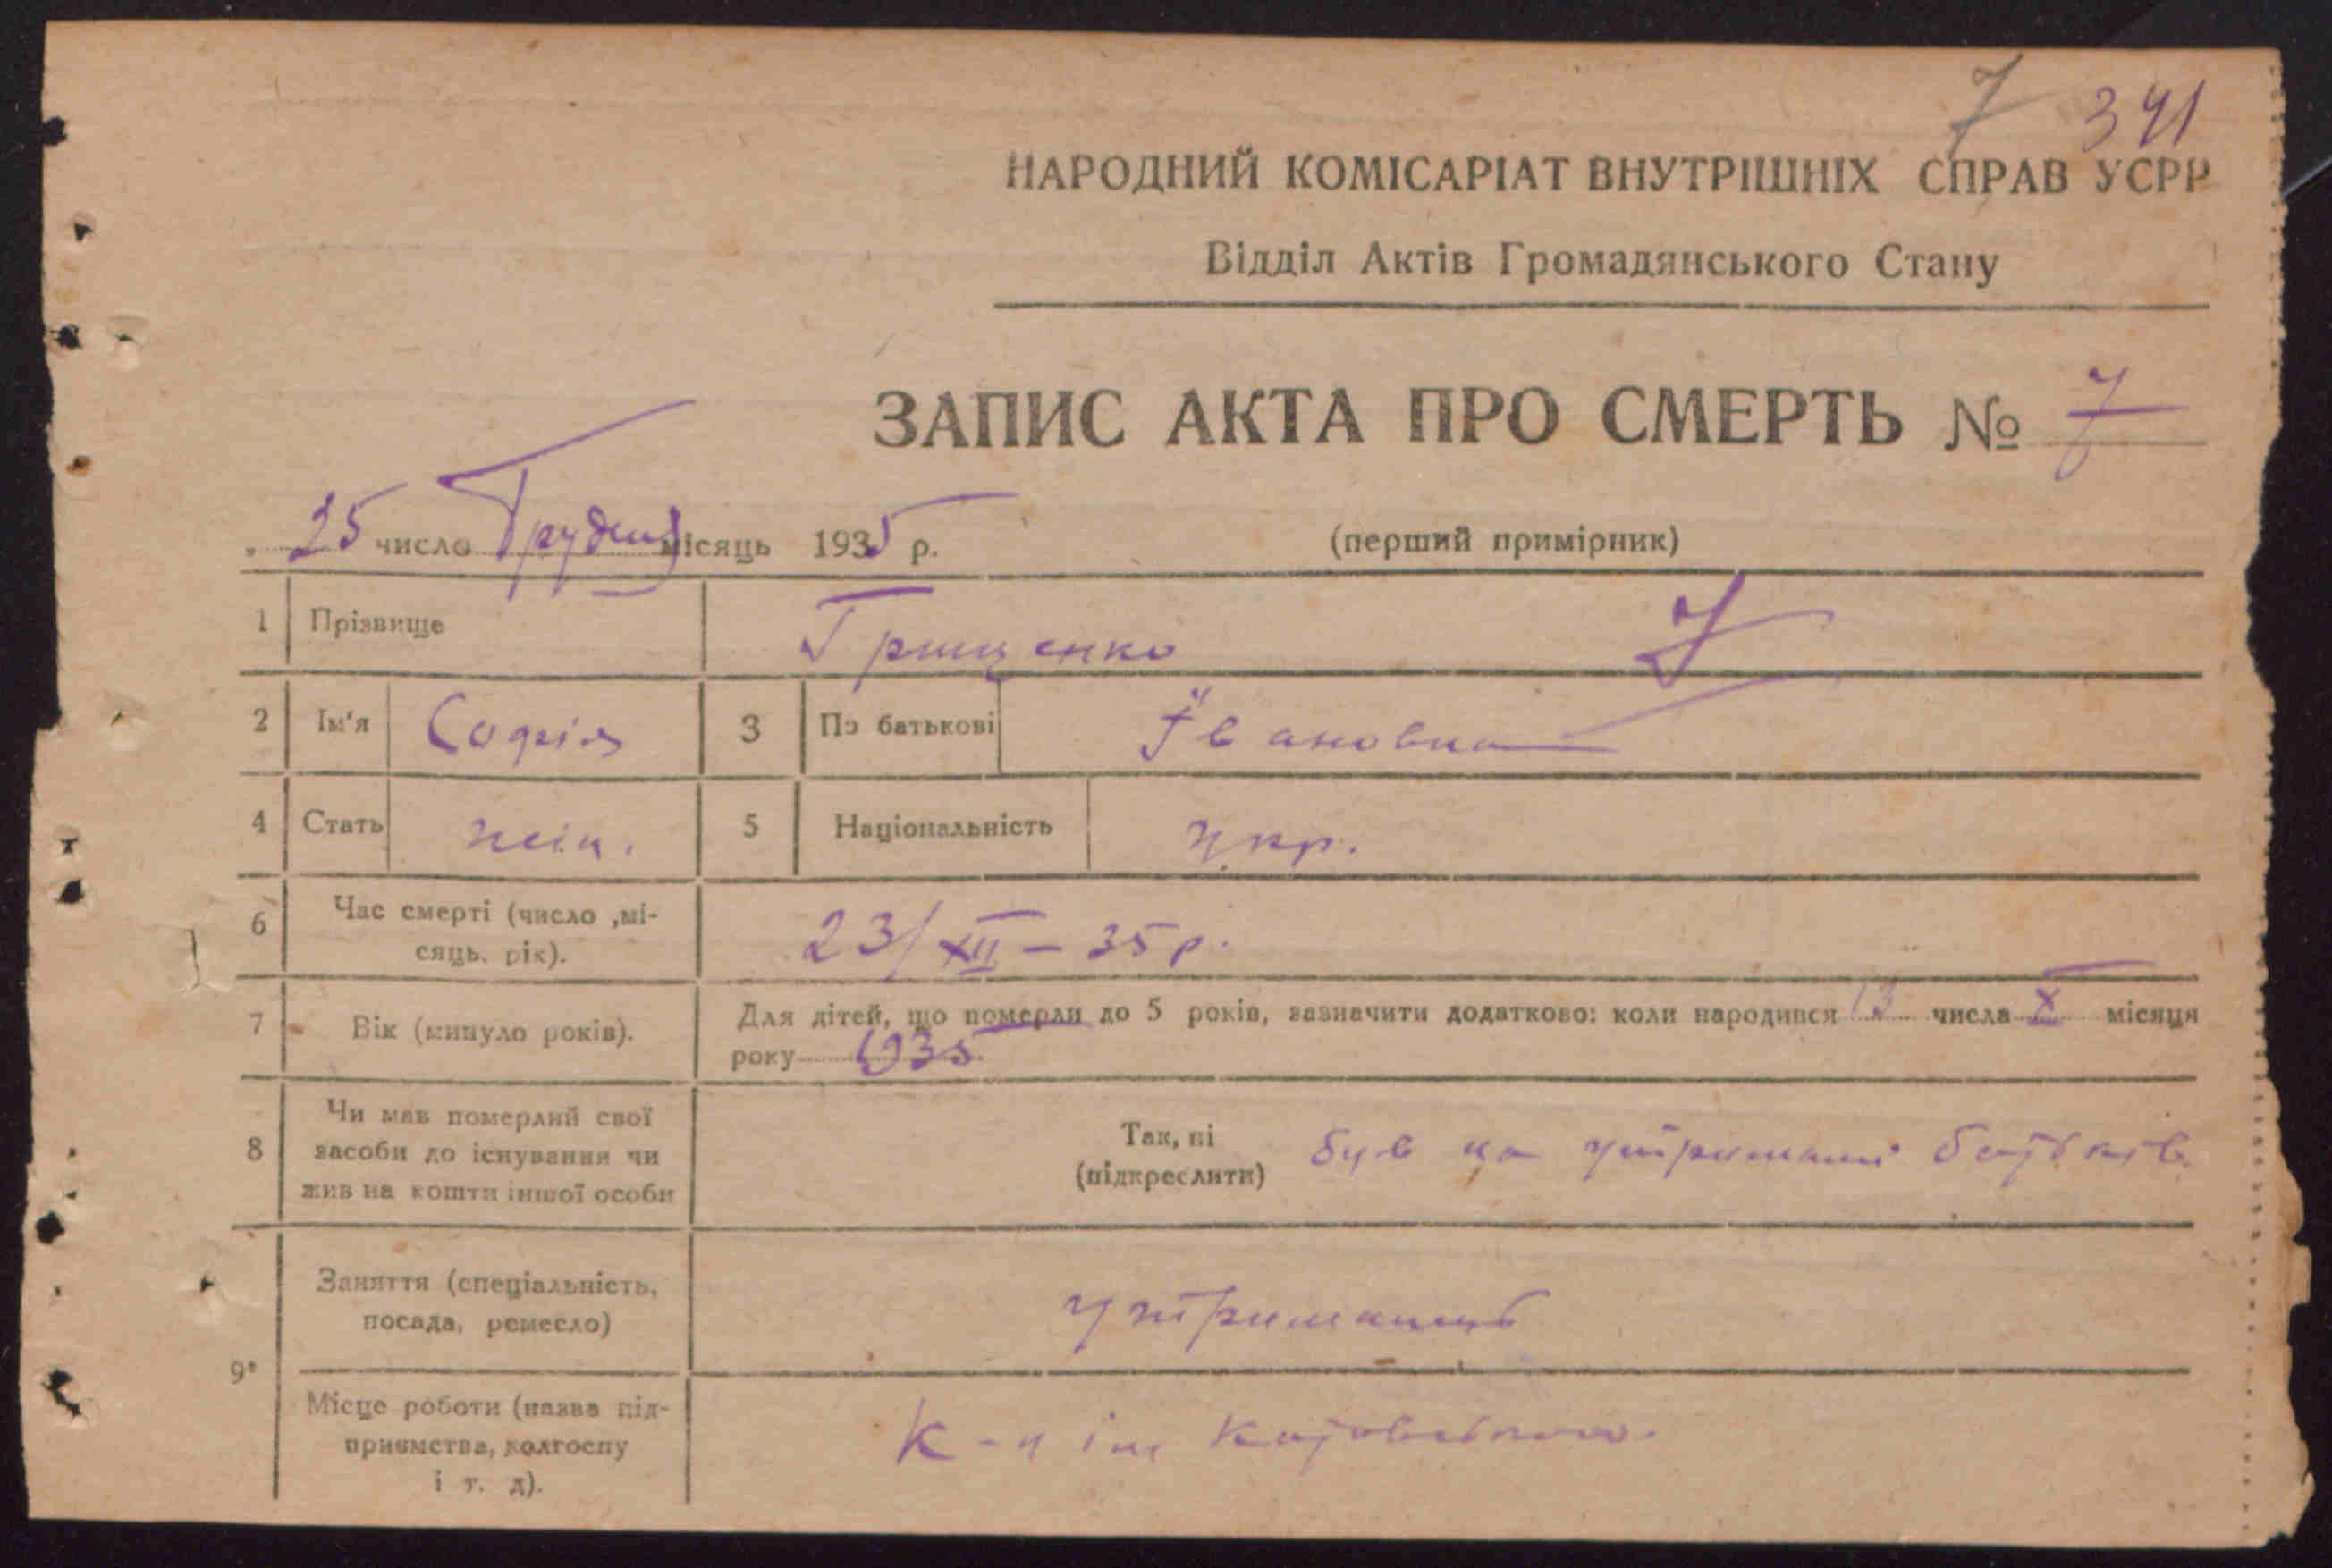 7 341
НАРОДНИЙ КОМІСАРІАТ ВНУТРІШНІХ СПРАВ УСРР
Відділ Актів Громадянського Стану
ЗАПИС АКТА ПРО СМЕРТЬ № 7
25 число Грудня місяць 1935 р. (перший примірник)
1 Прізвище Грищенко 7
2 Ім'я Софія 3 По батькові Івановна
4 Стать жін. 5 Національність укр.
6 Час смерті (число ,мі-
сяць, рік). 23/XII – 35 р.
7 Вік (минуло років). Для дітей, що померли до 5 років, зазначити додатково: коли народився 13 числа X місяця
року 1935
8 Чи мав померлий свої
засоби до існування чи
жив на кошти іншої особи
Так, ні
(підкреслити) був на утриманні батьків
9* Заняття (спеціальність,
посада, ремесло) утриманець
Місце роботи (назва під-
приємства, колгоспу
і т. д). К-п ім